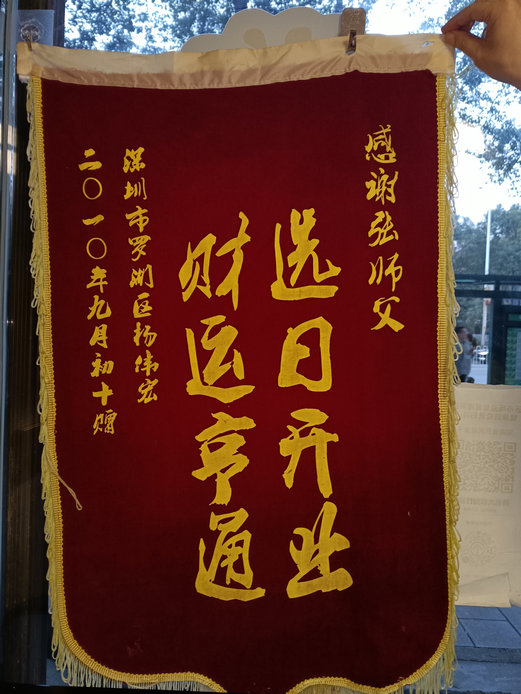 感谢张师父
选日开业
财运亨通
深圳市罗湖区杨伟宏
二〇一〇年九月初十赠